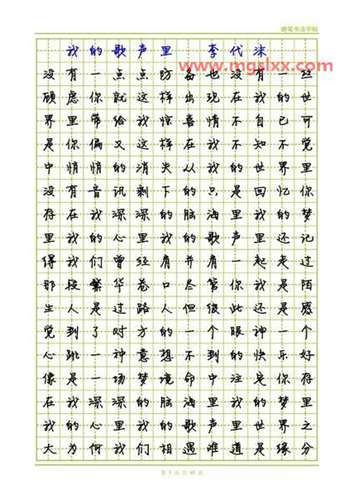 我的歌声里 李代沫
www.mgslxx.com
没有一点点防备也没有一丝
顾虑你就这样出现在我的世
界里带给我惊喜情不自已可
是你偏又这样在我不知不觉
中悄悄的消失从我的世界里
没有音讯剩下的只是回忆你
存在我深深的脑海里我的梦
里我的心里我的歌声里还记
得我们曾经肩并肩一起走过
那段繁华巷口尽管你我是陌
生人是过路人但彼此还是感
觉到了对方的一个眼神一个
心跳一种意想不到的快乐好
像是一场梦境命中注定你存
在我深深的脑海里我的梦里
我的心里我的歌声里世界之
大为何我们相遇难道是缘分